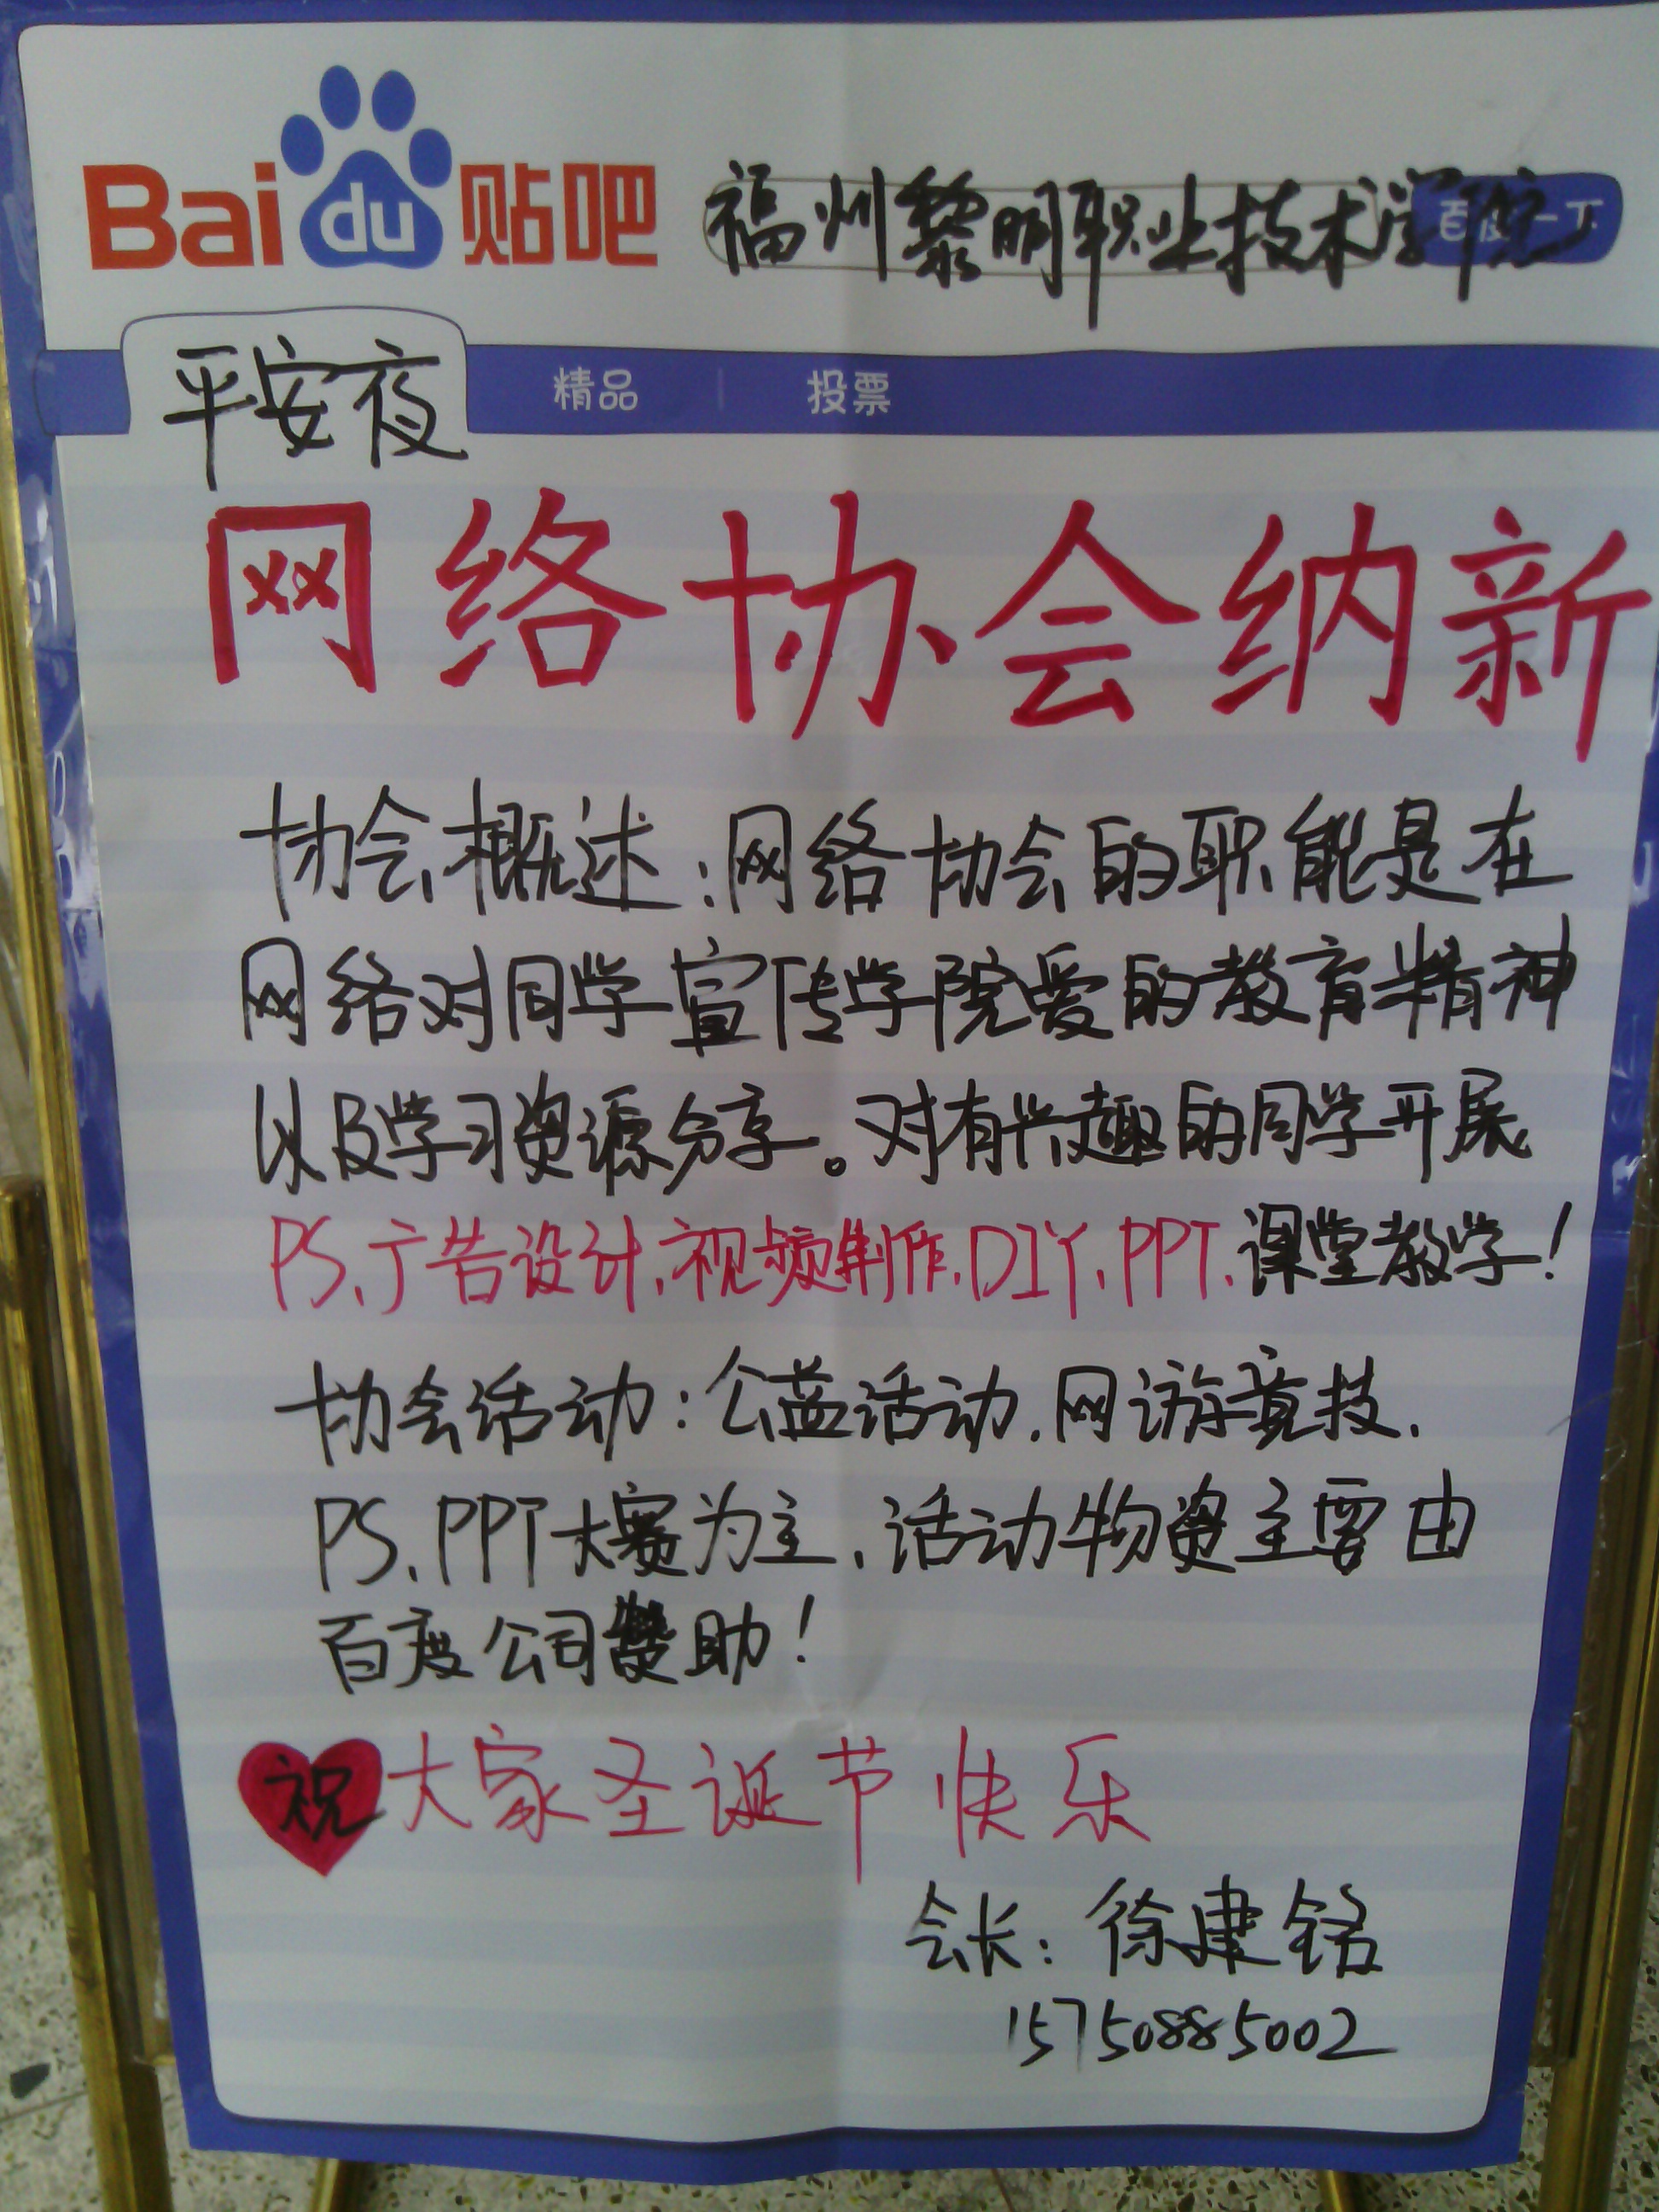 Baidu贴吧 福州黎明职业技术学院 百度一下
平安夜 精品 投票
网络协会纳新
协会概述:网络协会的职能是在
网络对同学宣传学院爱的教育精神
以及学习资源分享。对有兴趣的同学开展
PS、广告设计、视频制作、DIY、PPT、课堂教学!
协会活动:公益活动、网游竞技、
PS、PPT大赛为主、活动物资主要由
百度公司赞助!
祝大家圣诞节快乐
会长:徐建铭
15750885002